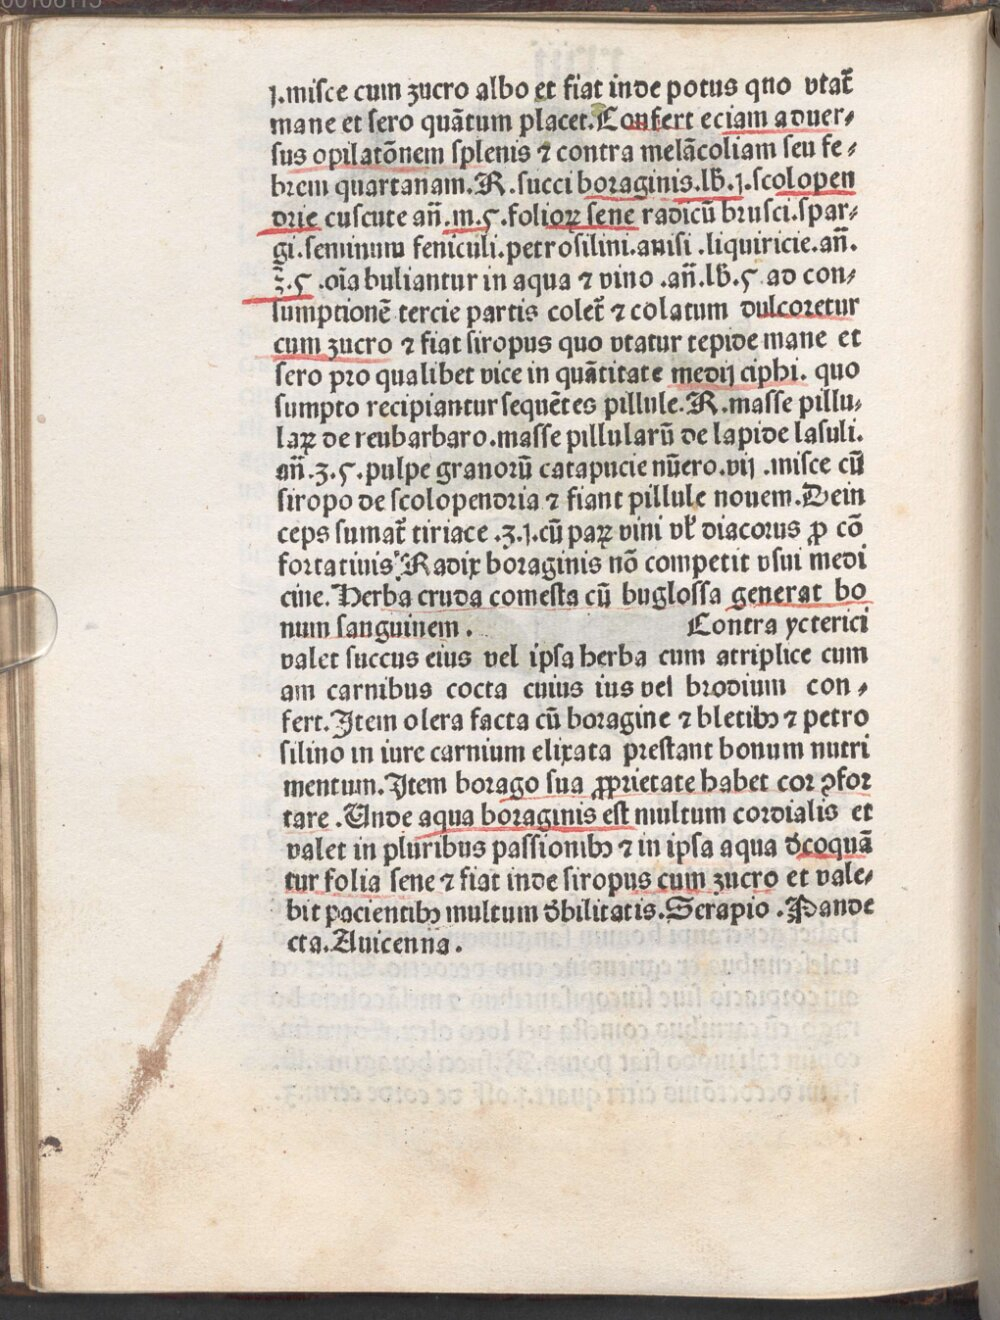 00108115
ȷ.misce cum zucro albo et fiat inde potus quo vtat᷑
mane et sero quãtum placet.Confert eciam aduer⸗
sus opilatõnem splenis ⁊ contra melãcoliam seu fe⸗
brem quartanam.R.succi boraginis.lb.ȷ.scolopen
drie cuscute añ.m.ς.folioꝝ sene radicũ brusci.spar⸗
gi.seminum feniculi.petrosilini.anisi.liquiricie.añ.
ʒ.ς.oĩa buliantur in aqua ⁊ vino.añ.lb.ς ad con⸗
sumptionẽ tercie partis colet᷑ ⁊ colatum dulcoretur
cum zucro ⁊ fiat siropus quo vtatur tepide mane et
sero pro qualibet vice in quãtitate medij ciphi. quo
sumpto recipiantur sequẽtes pillule.R.masse pillu⸗
laꝝ de reubarbaro.masse pillularũ de lapide lasuli.
añ.ʒ.ς.pulpe granorũ catapucie nũero.vij.misce cũ
siropo de scolopendria ⁊ fiant pillule nouem.Dein
ceps sumat᷑ tiriace.ʒ.ȷ.cũ paꝝ vini vl̃ diacorus ꝓ cõ
fortatiuis Radix boraginis nõ competit vsui medi
cine.Herba cruda comesta cũ buglossa generat bo
num sanguinem. Contra ycterici
valet succus eius vel ipsa herba cum atriplice cum
am carnibus cocta cuius ius vel brodium con⸗
fert.Item olera facta cũ boragine ⁊ bletibꝫ ⁊ petro
silino in iure carnium elixata prestant bonum nutri
mentum.Item borago sua ꝓprietate habet cor ꝯfor
tare.Unde aqua boraginis est multum cordialis et
valet in pluribus passionibꝫ ⁊ in ipsa aqua d̃coquã
tur folia sene ⁊ fiat inde siropus cum zucro et vale⸗
bit pacientibꝫ multum d̃bilitatis.Serapio.Pande
cta.Auicenna.